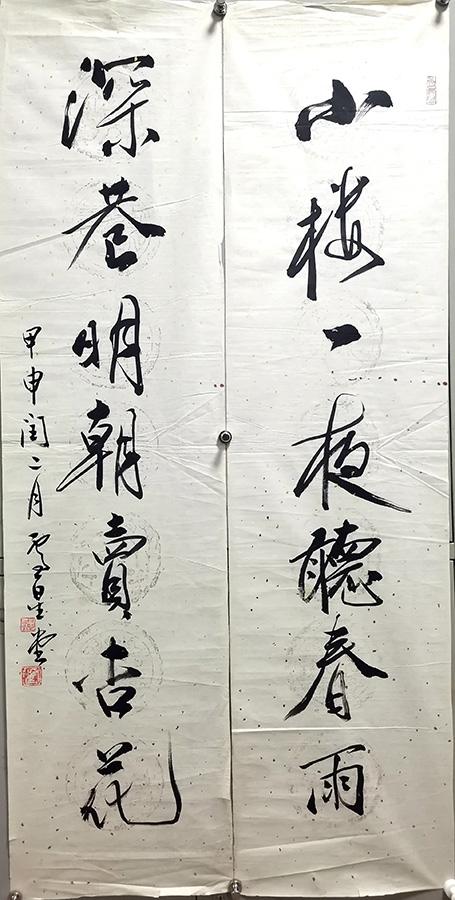 小楼一夜聽春雨
深巷明朝賣杏花
甲申闰二月